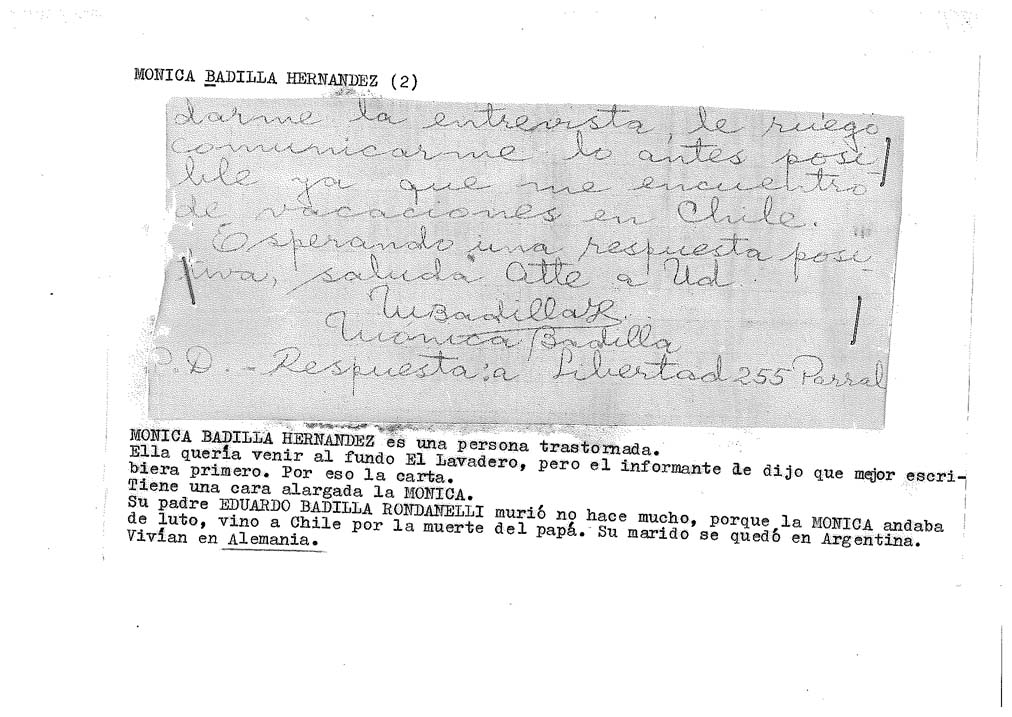 MONICA BADILLA HERNANDEZ (2)
darme la entrevista, le ruego
comunicarme lo antes posi-
ble ya que me encuentro
de vacaciones en Chile.
Esperando una respuesta posi-
tiva, saluda Atte a Ud.
MBadillaH.
Mónica Badilla
P.D. - Respuesta: a Libertad 255 Parral
MONICA BADILLA HERNANDEZ es una persona trastornada.
Ella quería venir al fundo El Lavadero, pero el informante le dijo que mejor escri-
biera primero. Por eso la carta.
Tiene una cara alargada la MONICA.
Su padre EDUARDO BADILLA RONDANELLI murió no hace mucho, porque la MONICA andaba
de luto, vino a Chile por la muerte del papá. Su marido se quedó en Argentina.
Vivían en Alemania.